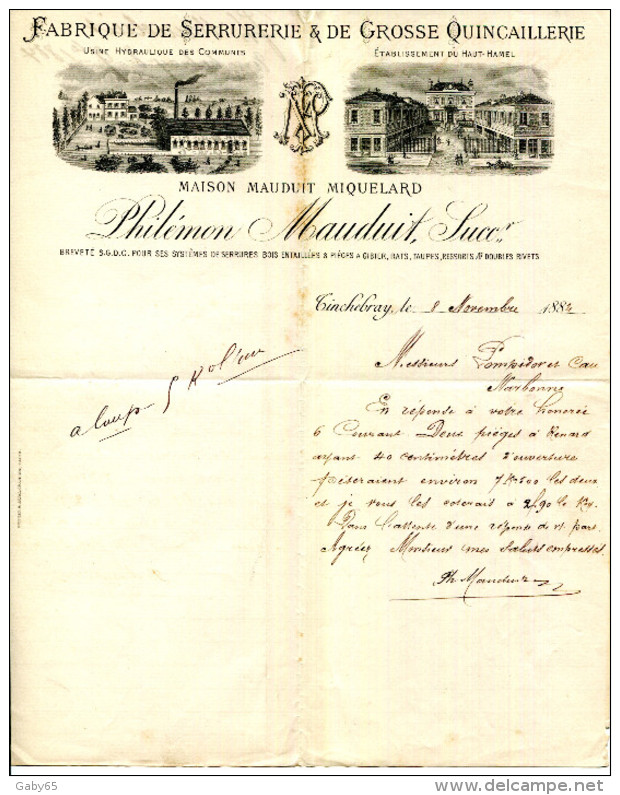 FABRIQUE DE SERRURERIE & DE GROSSE QUINCAILLERIE
USINE HYDRAULIQUE DES COMMUNES
ÉTABLISSEMENT DU HAUT-HAMEL
MAISON MAUDUIT MIQUELARD
Philémon Mauduit, Succr
BREVETÉ S.G.D.G. POUR SES SYSTÈMES DE SERRURES BOIS ENTAILLÉES & PIÈGES A GIBIER, RATS, TAUPES, RESSORTS AF DOUBLES RIVETS
Tinchebray, le 8 Novembre 188
Messieurs Pompidor et
Narbonne
En réponse à votre honorée
6 Courant Deux pièges à Renard
ayant 40 centimètres d'ouverture
péseraient environ 7 K 500 les deux
et je vous les coterais à 2f90 le Kg
Dans l'attente d'une réponse de vt part
Agréez Monsieur mes saluts empressés
Ph Mauduit
a loup 5 K
Gaby65
www.delcampe.net